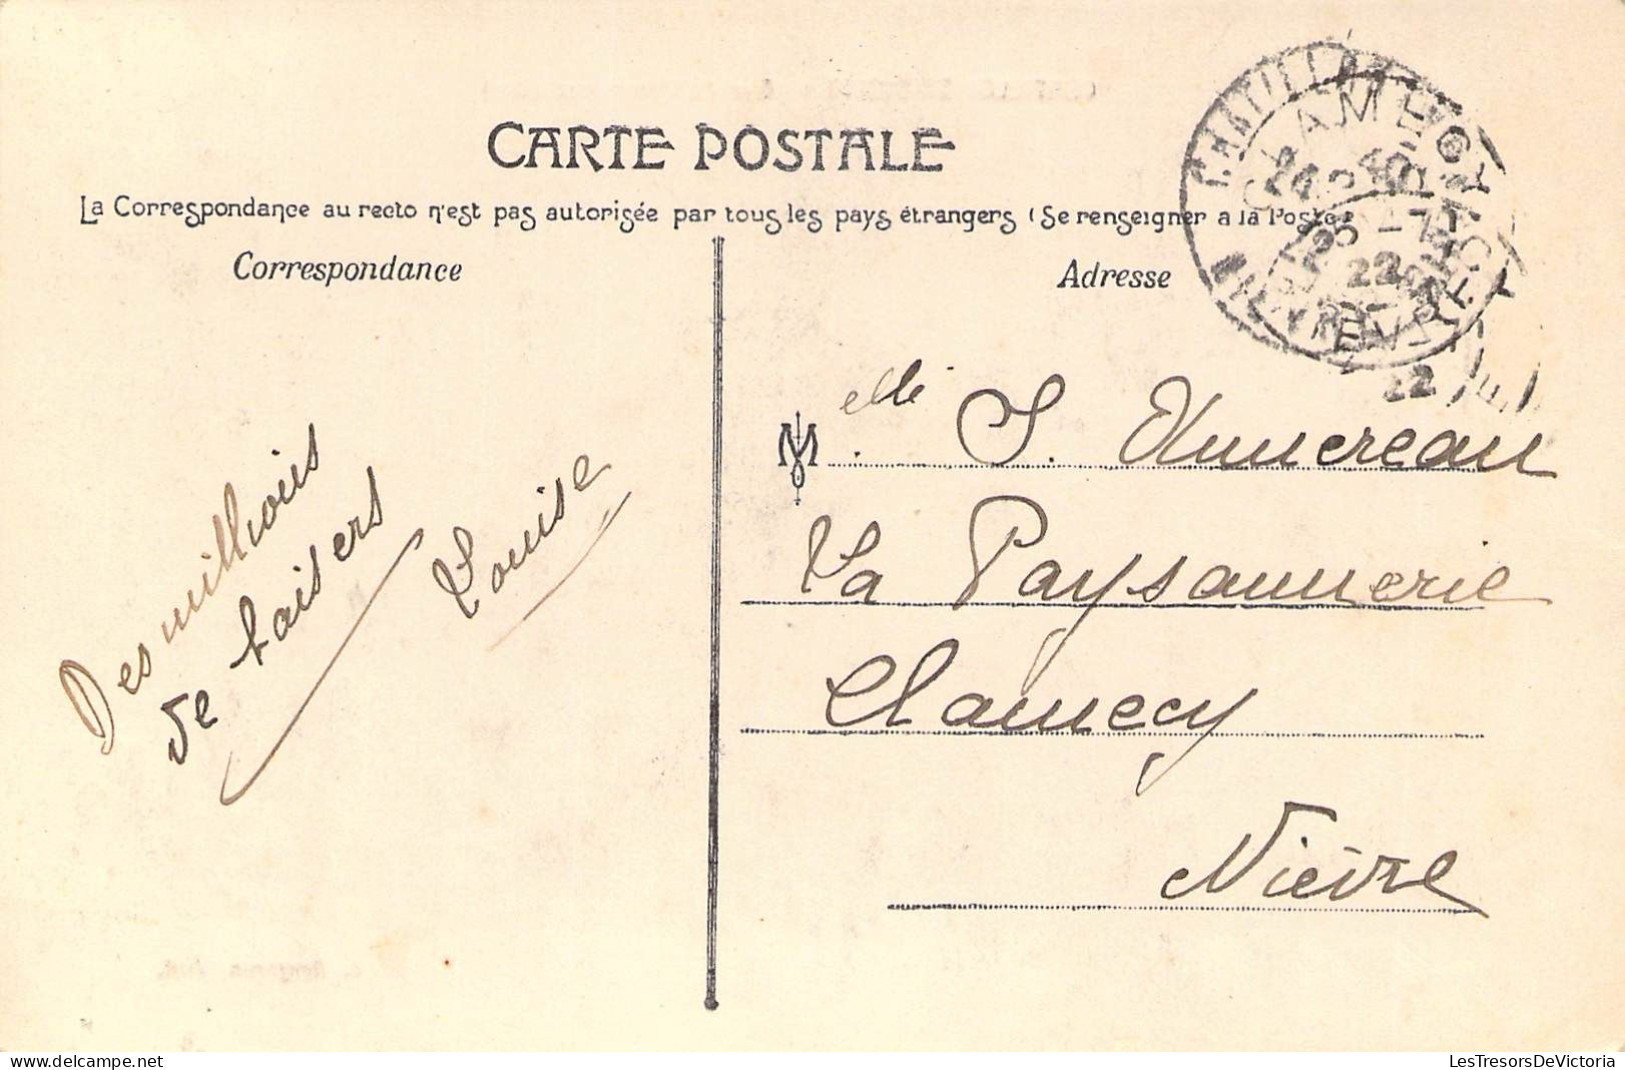 CARTE POSTALE
La Correspondance au recto n'est pas autorisée par tous les pays étrangers (Se renseigner a la Poste)
Correspondance
Adresse
Des milliois
de baisers
Louise
Melle S.
La Paysannerie
Clamecy
Nièvre
CLAMECY
NIEVRE
22
LesTresorsDeVictoria.com